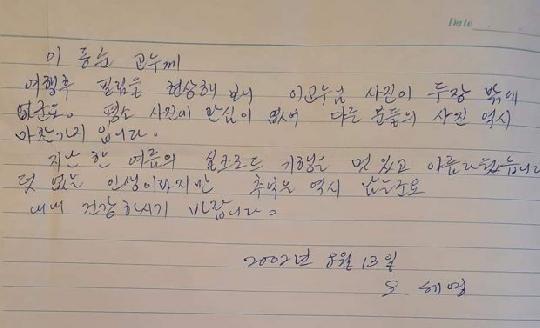 Date
이 동순 교수께
여행후 필름을 현상해 보니 이교수님 사진이 두장 밖에
없군요. 평소 사진에 관심이 없어 다른 분들의 사진 역시
마찬가지 입니다.
지난 한 여름의 실크로드 기행은 멋 있고 아름다웠습니다
덧 없는 인생이라지만 추억은 역시 남는군요
내내 건강하시기 바랍니다.
2002년 8월 13일
혜영